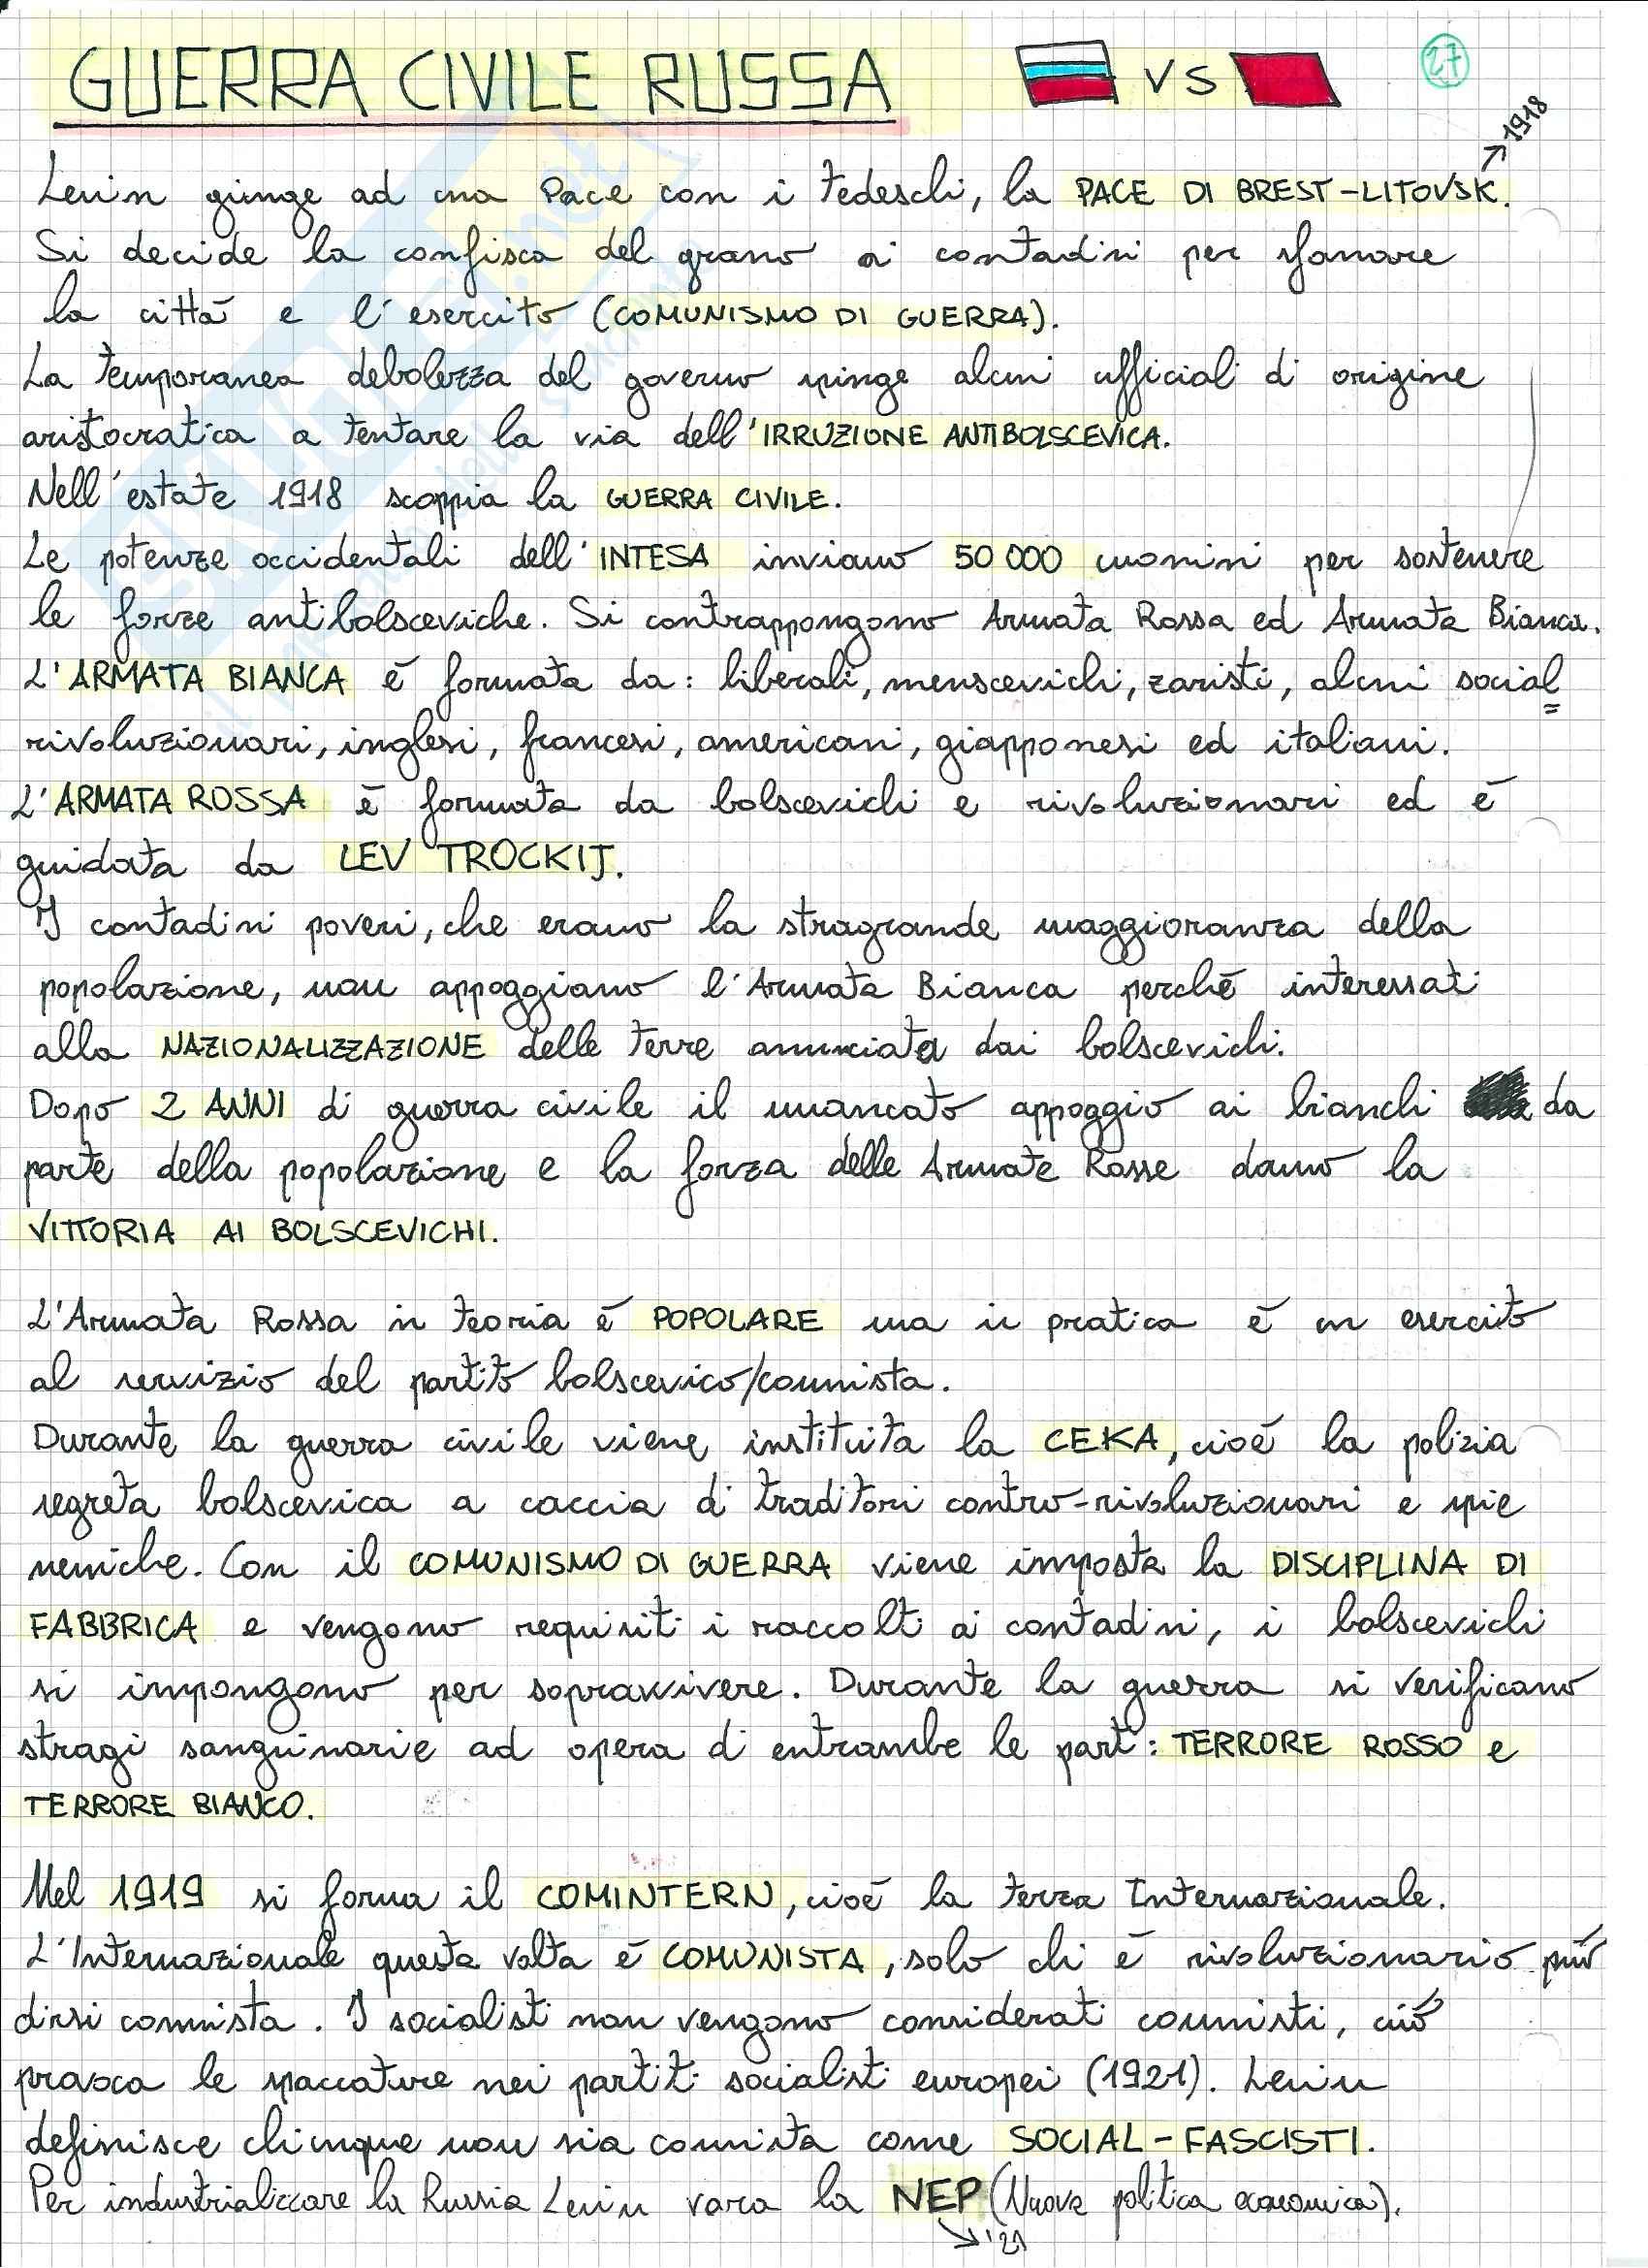 GUERRA CIVILE RUSSA VS 27
1918
Lenin giunge ad una Pace con i tedeschi, la PACE DI BREST-LITOVSK.
Si decide la confisca del grano ai contadini per sfamare
la città e l'esercito (COMUNISMO DI GUERRA).
La temporanea debolezza del governo spinge alcuni ufficiali di origine
aristocratica a tentare la via dell'IRRUZIONE ANTIBOLSCEVICA.
Nell'estate 1918 scoppia la GUERRA CIVILE.
Le potenze occidentali dell'INTESA inviano 50 000 uomini per sostenere
le forze antibolsceviche. Si contrappongono Armata Rossa ed Armata Bianca.
L'ARMATA BIANCA è formata da: liberali, menscevichi, zaristi, alcuni social=
rivoluzionari, inglesi, francesi, americani, giapponesi ed italiani.
L'ARMATA ROSSA è formata da bolscevichi e rivoluzionari ed è
guidata da LEV TROCKIJ.
I contadini poveri, che erano la stragrande maggioranza della
popolazione, non appoggiano l'Armata Bianca perché interessati
alla NAZIONALIZZAZIONE delle terre annunciata dai bolscevichi.
Dopo 2 ANNI di guerra civile il mancato appoggio ai bianchi da
parte della popolazione e la forza delle Armate Rosse danno la
VITTORIA AI BOLSCEVICHI.
L'Armata Rossa in teoria è POPOLARE ma in pratica è un esercito
al servizio del partito bolscevico/comunista.
Durante la guerra civile viene instituita la CEKA, cioè la polizia
segreta bolscevica a caccia di traditori contro-rivoluzionari e spie
nemiche. Con il COMUNISMO DI GUERRA viene imposta la DISCIPLINA DI
FABBRICA e vengono requisiti i raccolti ai contadini, i bolscevichi
si impongono per sopravvivere. Durante la guerra si verificano
stragi sanguinarie ad opera di entrambe le parti: TERRORE ROSSO e
TERRORE BIANCO.
Nel 1919 si forma il COMINTERN, cioè la terza Internazionale.
L'Internazionale questa volta è COMUNISTA, solo chi è rivoluzionario può
dirsi comunista. I socialisti non vengono considerati comunisti, ciò
provoca le spaccature nei partiti socialisti europei (1921). Lenin
definisce chiunque non sia comunista come SOCIAL-FASCISTI.
Per industrializzare la Russia Lenin vara la NEP (Nuova politica economica).
'21